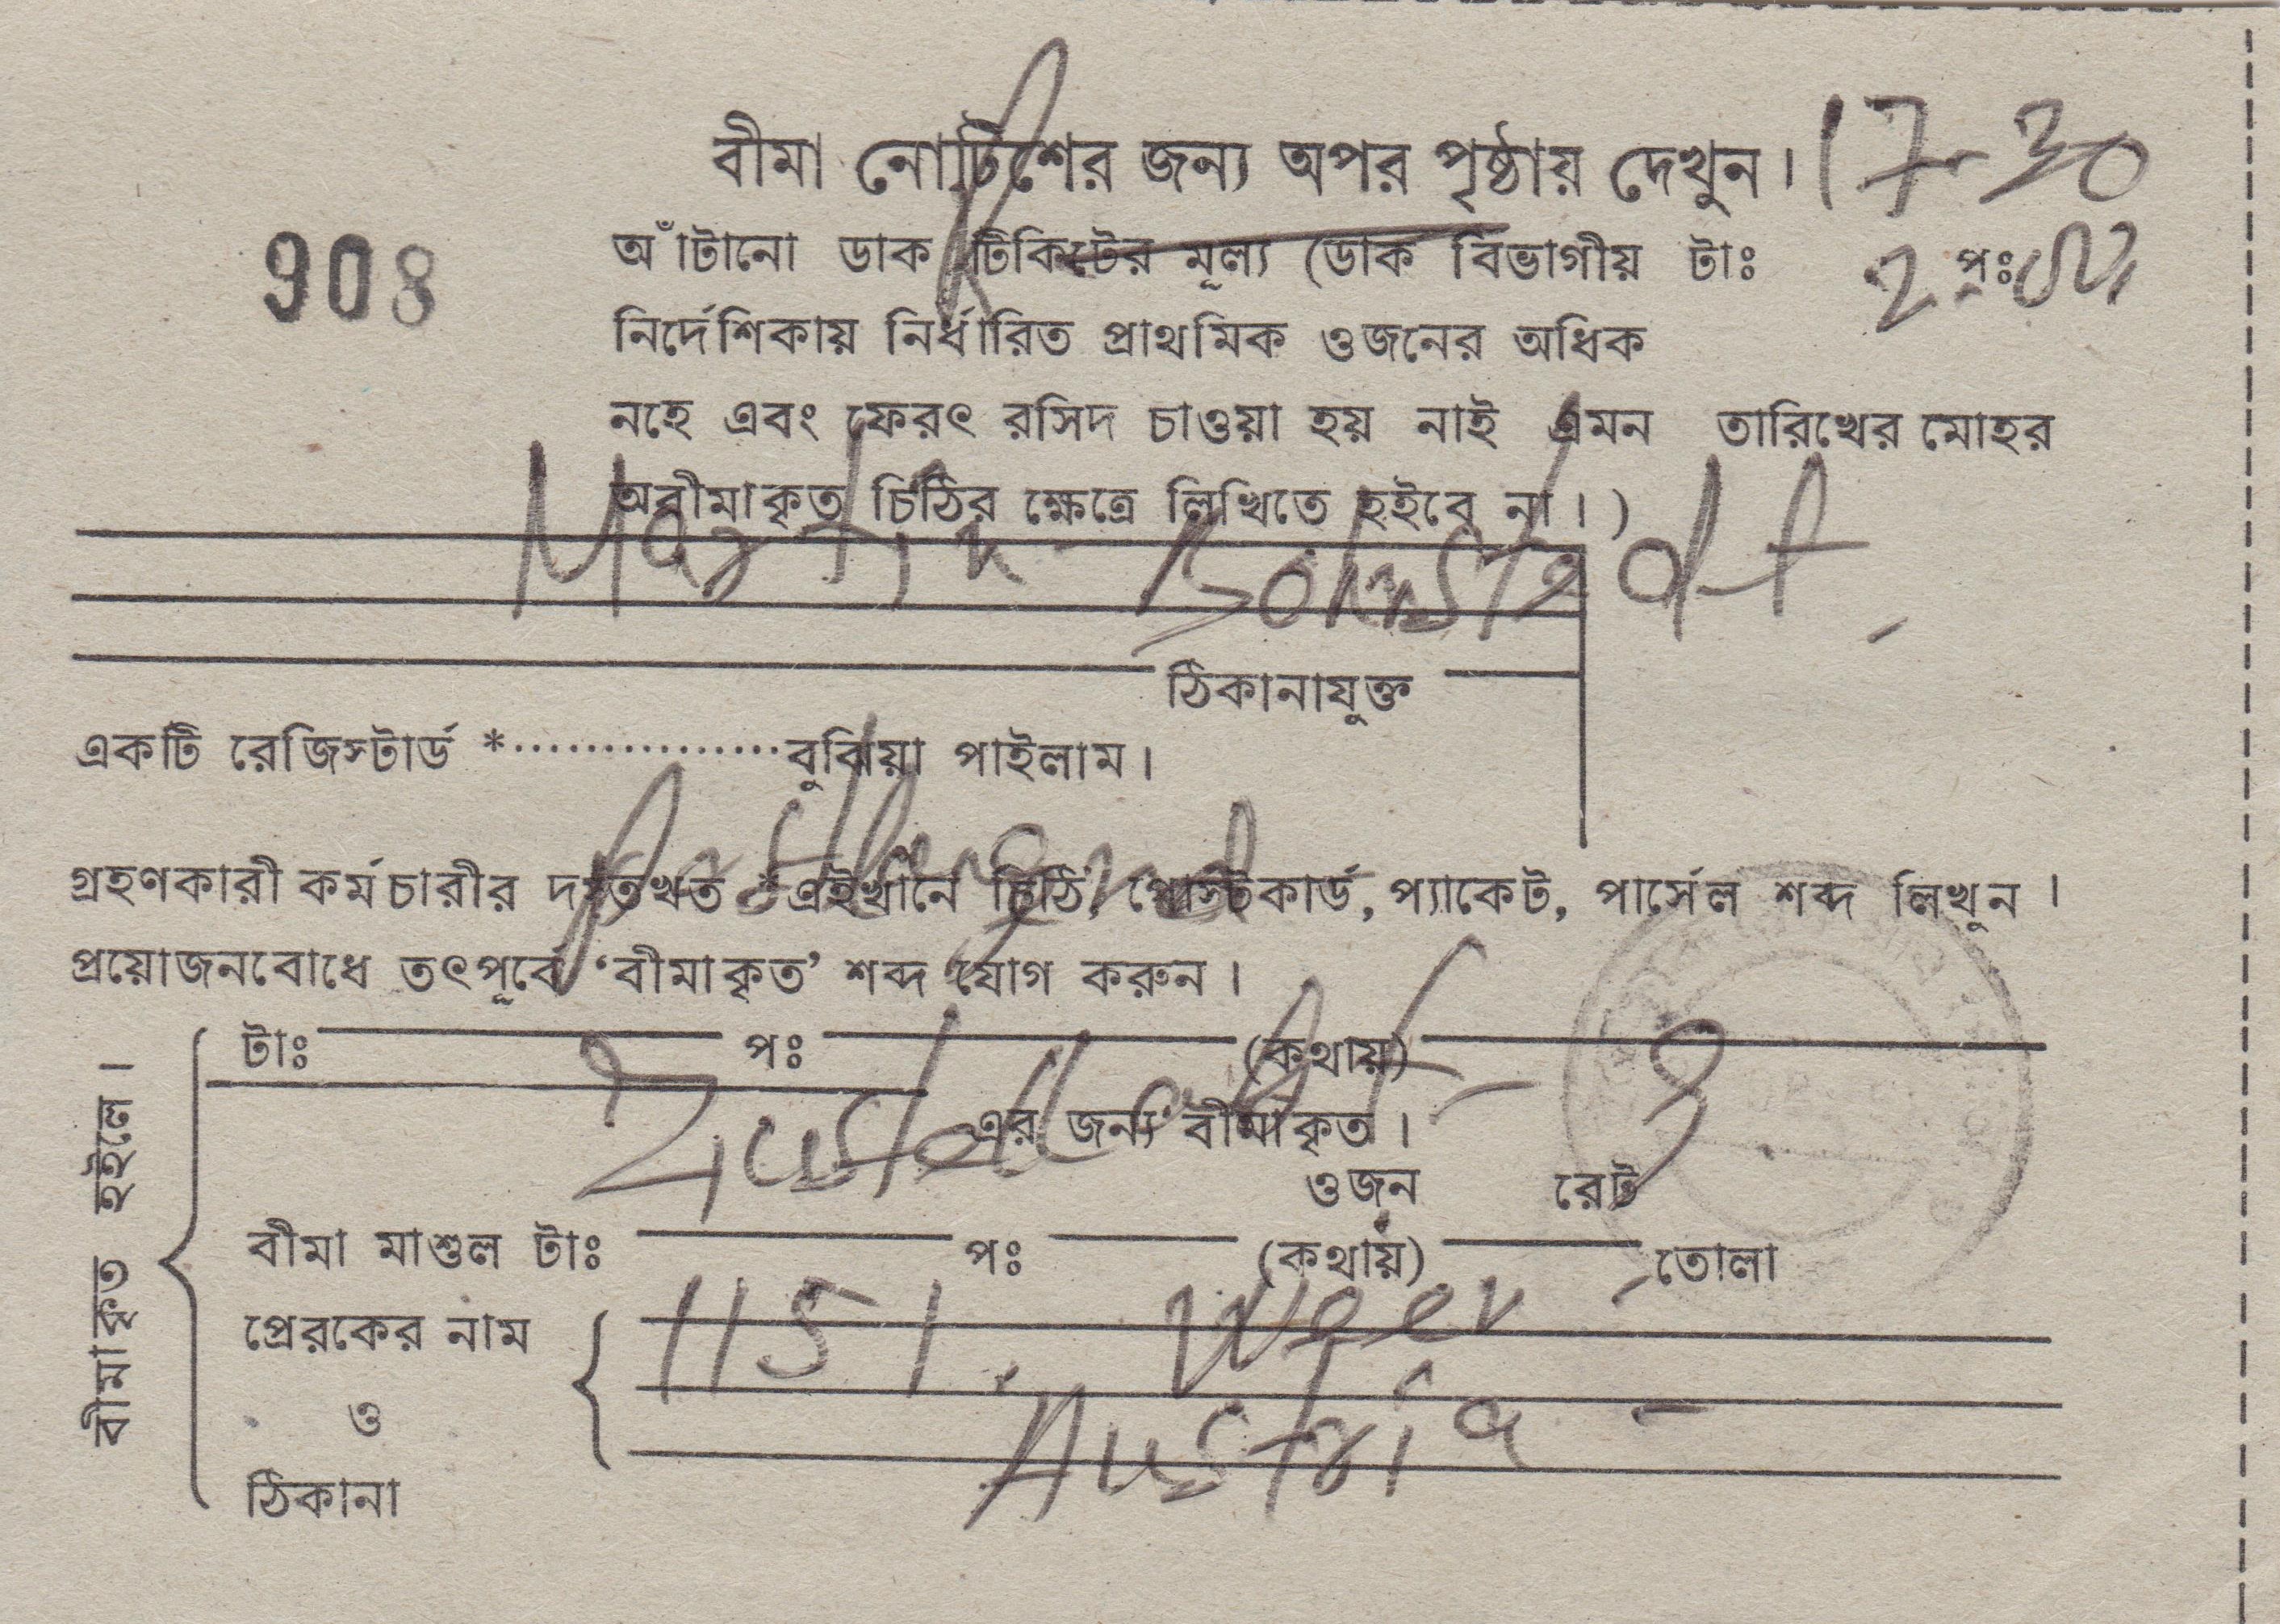 বীমা নোটিশের জন্য অপর পৃষ্ঠায় দেখুন। 17-30
908
আঁটানো ডাক টিকিটের মূল্য (ডাক বিভাগীয় টাঃ পঃ
নির্দেশিকায় নির্ধারিত প্রাথমিক ওজনের অধিক
নহে এবং ফেরৎ রসিদ চাওয়া হয় নাই এমন তারিখের মোহর
অবীমাকৃত চিঠির ক্ষেত্রে লিখিতে হইবে না।)
Martin
ঠিকানাযুক্ত
একটি রেজিস্টার্ড *...............বুঝিয়া পাইলাম।
গ্রহণকারী কর্মচারীর দস্তখত *এইখানে চিঠি, পোস্টকার্ড, প্যাকেট, পার্সেল শব্দ লিখুন।
প্রয়োজনবোধে তৎপূর্বে ‘বীমাকৃত’ শব্দ যোগ করুন।
বীমাকৃত হইলে।
টাঃ পঃ (কথায়)
এর জন্য বীমাকৃত।
ওজন রেট
বীমা মাশুল টাঃ পঃ (কথায়) তোলা
প্রেরকের নাম 1151.
ও
Austria
ঠিকানা